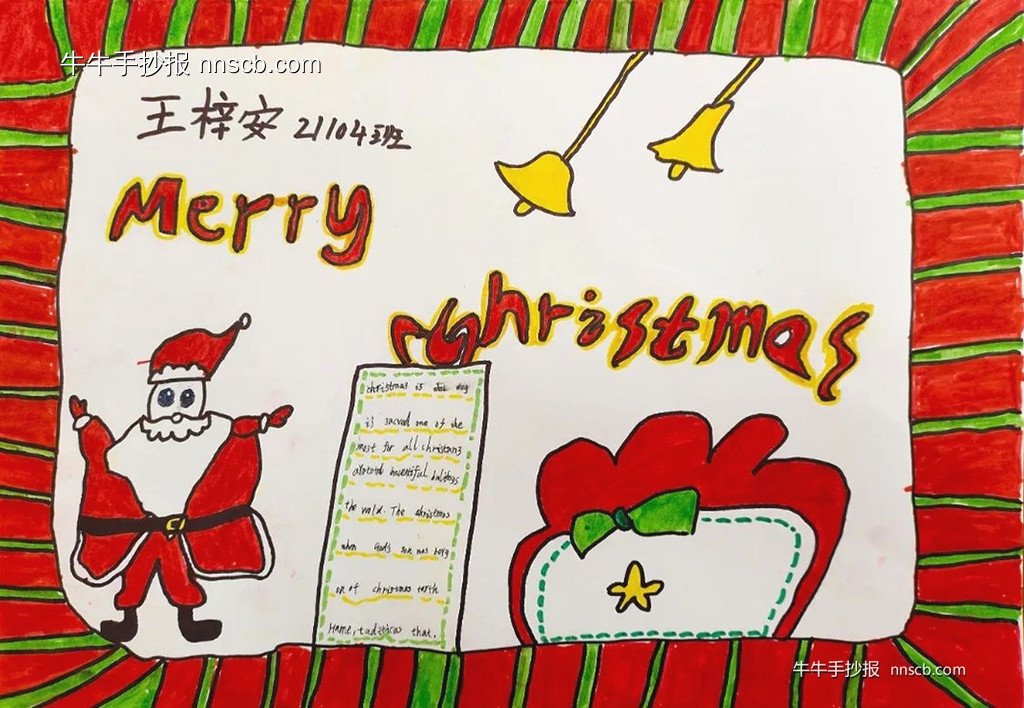 牛牛手抄报 nnscb.com
王梓安 21104班
Merry
christmas
christmas is day
is sacred one of the
most for all christians
the world. The christmas
when God's son was born
on of christmas earth
Home, that.
牛牛手抄报 nnscb.com